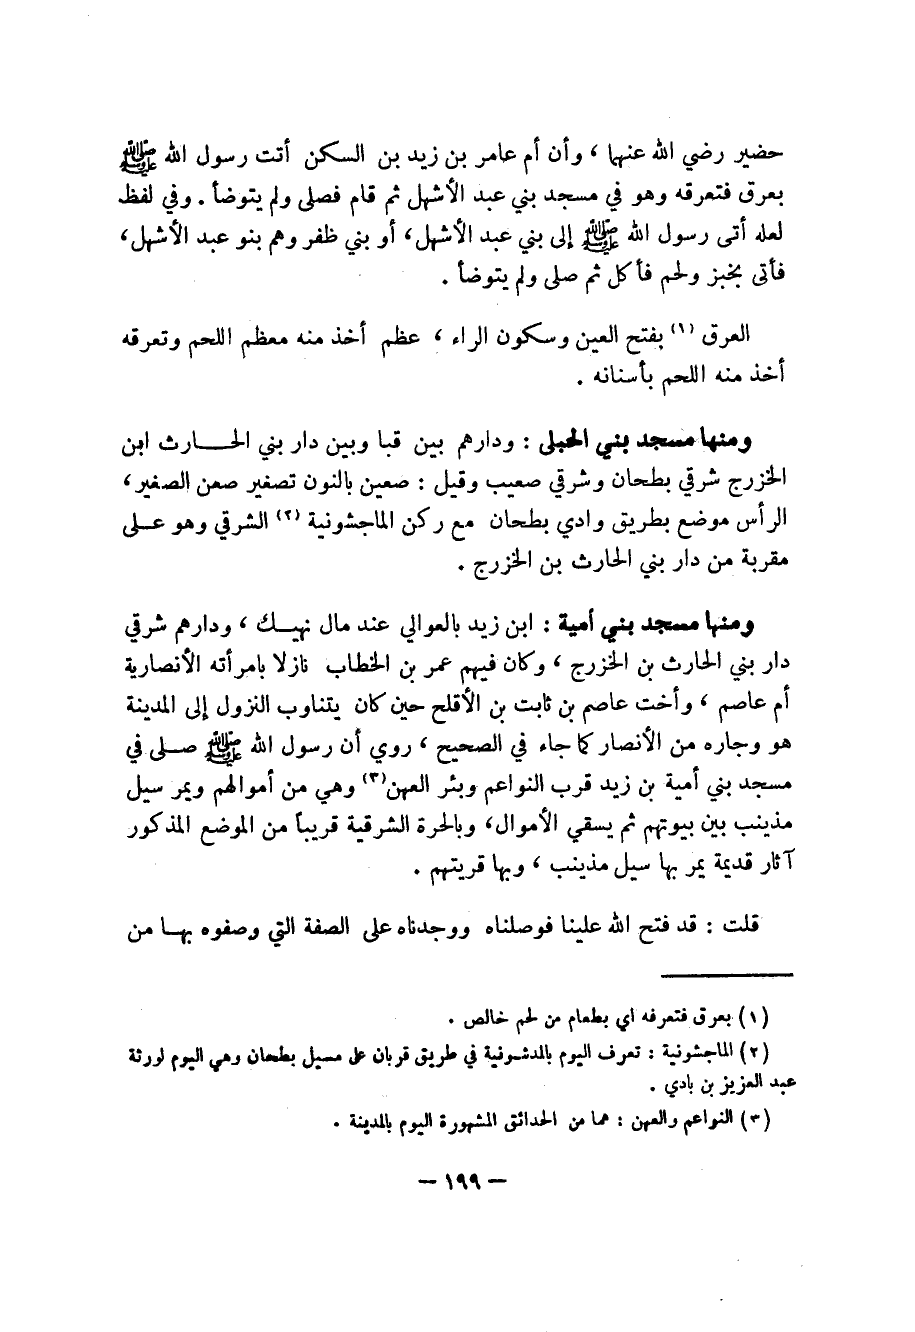 حضير رضي الله عنهما ، وأن أم عامر بن زيد بن السكن أتت رسول الله ﷺ
بعرق فتعرقه وهو في مسجد بني عبد الأشهل ثم قام فصلى ولم يتوضأ . وفي لفظ
لعله أتى رسول الله ﷺ إلى بني عبد الأشهل، أو بني ظفر وهم بنو عبد الأشهل،
فأتى بخبز ولحم فأكل ثم صلى ولم يتوضأ .
العرق (١) بفتح العين وسكون الراء ، عظم أخذ منه معظم اللحم وتعرقه
أخذ منه اللحم بأسنانه .
ومنها مسجد بني الحبلى : ودارهم بين قبا وبين دار بني الحـــارث ابن
الخزرج شرقي بطحان وشرقي صعيب وقيل : صعين بالنون تصغير صعن الصغير،
الرأس موضع بطريق وادي بطحان مع ركن الماجشونية (٢) الشرقي وهو عـلى
مقربة من دار بني الحارث بن الخزرج .
ومنها مسجد بني أمية : ابن زيد بالعوالي عند مال نهيـك ، ودارهم شرقي
دار بني الحارث بن الخزرج ، وكان فيهم عمر بن الخطاب نازلا بامرأته الأنصارية
أم عاصم ، وأخت عاصم بن ثابت بن الأقلح حين كان يتناوب النزول إلى المدينة
هو وجاره من الأنصار كما جاء في الصحيح ، روي أن رسول الله ﷺ صـلى في
مسجد بني أمية بن زيد قرب النواعم وبئر العهن(٣) وهي من أموالهم ويمر سيل
مذينب بين بيوتهم ثم يسقي الأموال، وبالحرة الشرقية قريباً من الموضع المذكور
آثار قديمة يمر بها سيل مذينب ، وبها قريتهم .
قلت : قد فتح الله علينا فوصلناه ووجدناه على الصفة التي وصفوه بهـا من
(١) بعرق فتعرفه اي بطعام من لحم خالص .
(٢) الماجشونية : تعرف اليوم بالمدشونية في طريق قربان على مسيل بطحان وهي اليوم لورثة
عبد العزيز بن بادي .
(٣) النواعم والعهن : هما من الحدائق المشهورة اليوم بالمدينة .
— ١٩٩ —